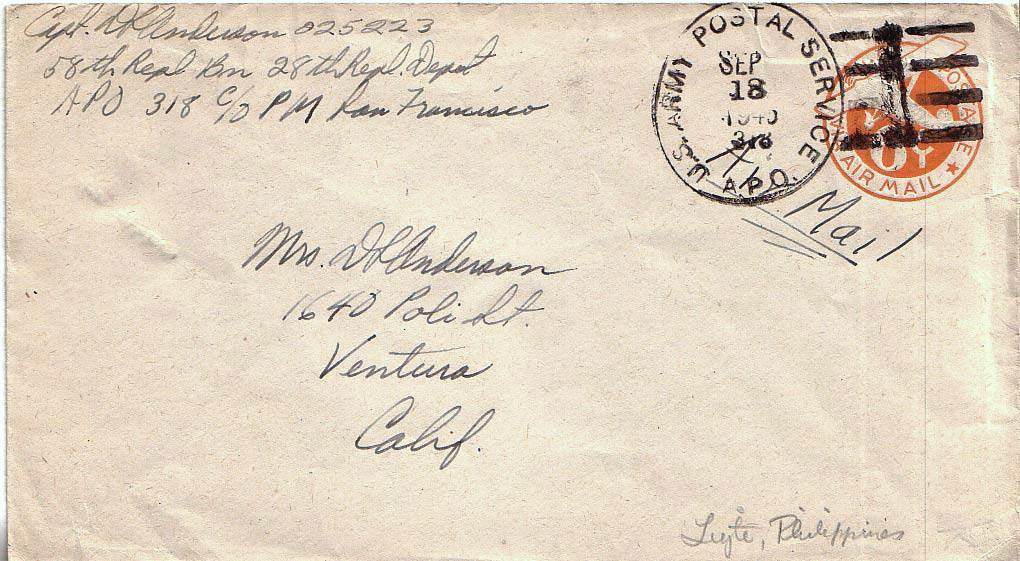 Capt. DL Anderson 025223
58th Repl Bn 28th Repl. Depot
APO 318 C/O PM San Francisco
U.S. ARMY POSTAL SERVICE
SEP
18
1945
318
A.P.O.
POSTAGE
6¢
AIR MAIL
Air Mail
Mrs. DL Anderson
1640 Poli St.
Ventura
Calif.
Leyte, Philippines